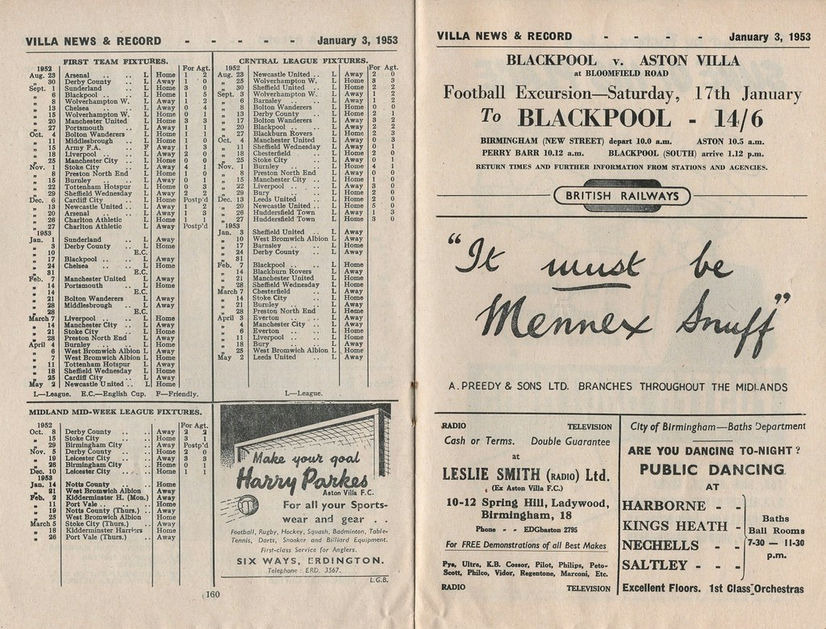 VILLA NEWS & RECORD - - - - - January 3, 1953
FIRST TEAM FIXTURES.
1952 For Agt.
Aug. 23 Arsenal .. .. L Home 1 2
„ 30 Derby County L Away 1 0
Sept. 1 Sunderland .. L Home 3 0
„ 6 Blackpool .. .. L Home 1 5
„ 8 Wolverhampton W. L Away 1 2
„ 13 Chelsea .. .. L Away 0 4
„ 15 Wolverhampton W. L Home 0 1
„ 20 Manchester United L Home 3 3
„ 27 Portsmouth .. L Away 1 1
Oct. 4 Bolton Wanderers L Home 1 1
„ 11 Middlesbrough L Home 1 0
„ 15 Army F.A. .. F Away 1 3
„ 18 Liverpool .. .. L Away 2 0
„ 25 Manchester City L Home 0 0
Nov. 1 Stoke City .. L Away 4 1
„ 8 Preston North End L Home 1 0
„ 15 Burnley .. .. L Away 0 1
„ 22 Tottenham Hotspur L Home 0 3
„ 29 Sheffield Wednesday L Away 2 2
Dec. 6 Cardiff City .. L Home Postp'd
„ 13 Newcastle United .. L Away 1 2
„ 20 Arsenal .. .. L Away 1 3
„ 26 Charlton Athletic L Home 1 1
„ 27 Charlton Athletic L Away Postp'd
1953
Jan. 1 Sunderland .. L Away
„ 3 Derby County .. L Home
„ 10 E.C.
„ 17 Blackpool .. .. L Away
„ 24 Chelsea .. .. L Home
„ 31 E.C.
Feb. 7 Manchester United L Away
„ 14 Portsmouth .. L Home
„ 14 E.C.
„ 21 Bolton Wanderers L Away
„ 28 Middlesbrough L Away
„ 28 E.C.
March 7 Liverpool .. .. L Home
„ 14 Manchester City .. L Away
„ 21 Stoke City .. L Home
„ 28 Preston North End L Away
April 4 Burnley .. .. L Home
„ 6 West Bromwich Albion L Away
„ 7 West Bromwich Albion L Home
„ 11 Tottenham Hotspur L Away
„ 18 Sheffield Wednesday L Home
„ 25 Cardiff City .. L Away
May 2 Newcastle United .. L Home
L—League. E.C.—English Cup. F—Friendly.
CENTRAL LEAGUE FIXTURES.
1952 For Agt.
Aug. 23 Newcastle United .. L Away 2 0
„ 25 Wolverhampton W. L Home 3 3
„ 30 Sheffield United .. L Home 2 2
Sept. 3 Wolverhampton W. L Away 1 2
„ 6 Barnsley .. .. L Away 1 2
„ 8 Bolton Wanderers L Home 0 0
„ 13 Derby County L Home 2 1
„ 17 Bolton Wanderers L Away 3 2
„ 20 Blackpool .. .. L Away 2 2
„ 27 Blackburn Rovers L Home 2 3
Oct. 4 Manchester United L Away
„ 11 Sheffield Wednesday L Home
„ 18 Chesterfield .. L Home 2 0
„ 25 Stoke City .. L Away 0 1
Nov. 1 Burnley .. .. L Home 4 1
„ 8 Preston North End L Away 0 0
„ 15 Manchester City L Home 1 0
„ 22 Liverpool .. .. L Away 3 0
„ 29 Bury .. .. L Home 2 0
Dec. 13 Leeds United .. L Home 2 0
„ 20 Newcastle United L Home 5 0
„ 26 Huddersfield Town L Away 1 3
„ 27 Huddersfield Town L Home 3 0
1953
Jan. 3 Sheffield United .. L Away
„ 10 West Bromwich Albion L Away
„ 17 Barnsley .. .. L Home
„ 24 Derby County L Away
„ 31
Feb. 7 Blackpool .. .. L Home
„ 14 Blackburn Rovers L Away
„ 21 Manchester United L Home
„ 28 Sheffield Wednesday L Home
March 7 Chesterfield .. L Away
„ 14 Stoke City .. L Home
„ 21 Burnley .. .. L Away
„ 28 Preston North End L Home
April 3 Everton .. .. L Away
„ 4 Manchester City .. L Away
„ 6 Everton .. .. L Home
„ 11 Liverpool .. .. L Home
„ 18 Bury .. .. L Away
„ 25 West Bromwich Albion L Home
May 2 Leeds United .. L Away
L—League.
MIDLAND MID-WEEK LEAGUE FIXTURES.
1952 For Agt.
Oct. 8 Derby County .. Away 2 2
„ 15 Stoke City .. Home 3 1
„ 29 Birmingham City .. Away Postp'd
Nov. 5 Derby County .. Home 2 0
„ 19 Leicester City .. Away 3 3
„ 26 Birmingham City .. Home 0 1
Dec. 10 Leicester City .. Home 1 1
1953
Jan. 14 Notts County .. Home
„ 21 West Bromwich Albion Away
Feb. 2 Kidderminster H. (Mon.) Away
„ 11 Port Vale .. .. Home
„ 19 Notts County (Thurs.) Away
„ 25 West Bromwich Albion Home
March 5 Stoke City (Thurs.) Away
„ 18 Kidderminster Harriers Home
„ 26 Port Vale (Thurs.) Away
Make your goal
Harry Parkes
Aston Villa F.C.
For all your Sports-
wear and gear . . .
Football, Rugby, Hockey, Squash, Badminton, Table-
Tennis, Darts, Snooker and Billiard Equipment.
First-class Service for Anglers.
SIX WAYS, ERDINGTON.
Telephone: ERD. 3567.
L.G.B.
160
VILLA NEWS & RECORD - - - - January 3, 1953
BLACKPOOL v. ASTON VILLA
at BLOOMFIELD ROAD
Football Excursion—Saturday, 17th January
To BLACKPOOL - 14/6
BIRMINGHAM (NEW STREET) depart 10.0 a.m. ASTON 10.5 a.m.
PERRY BARR 10.12 a.m. BLACKPOOL (SOUTH) arrive 1.12 p.m.
RETURN TIMES AND FURTHER INFORMATION FROM STATIONS AND AGENCIES.
BRITISH RAILWAYS
"It must be
Mennex Snuff"
A. PREEDY & SONS LTD. BRANCHES THROUGHOUT THE MIDLANDS
RADIO TELEVISION
Cash or Terms. Double Guarantee
at
LESLIE SMITH (RADIO) Ltd.
(Ex Aston Villa F.C.)
10-12 Spring Hill, Ladywood,
Birmingham, 18
Phone - - EDGbaston 2795
For FREE Demonstrations of all Best Makes
Pye, Ultra, K.B. Cossor, Pilot, Philips, Peto-
Scott, Philco, Vidor, Regentone, Marconi, Etc.
RADIO TELEVISION
City of Birmingham—Baths Department
ARE YOU DANCING TO-NIGHT?
PUBLIC DANCING
AT
HARBORNE - -
KINGS HEATH -
NECHELLS - -
SALTLEY - - -
Baths
Ball Rooms
7-30 — 11-30
p.m.
Excellent Floors. 1st Class Orchestras